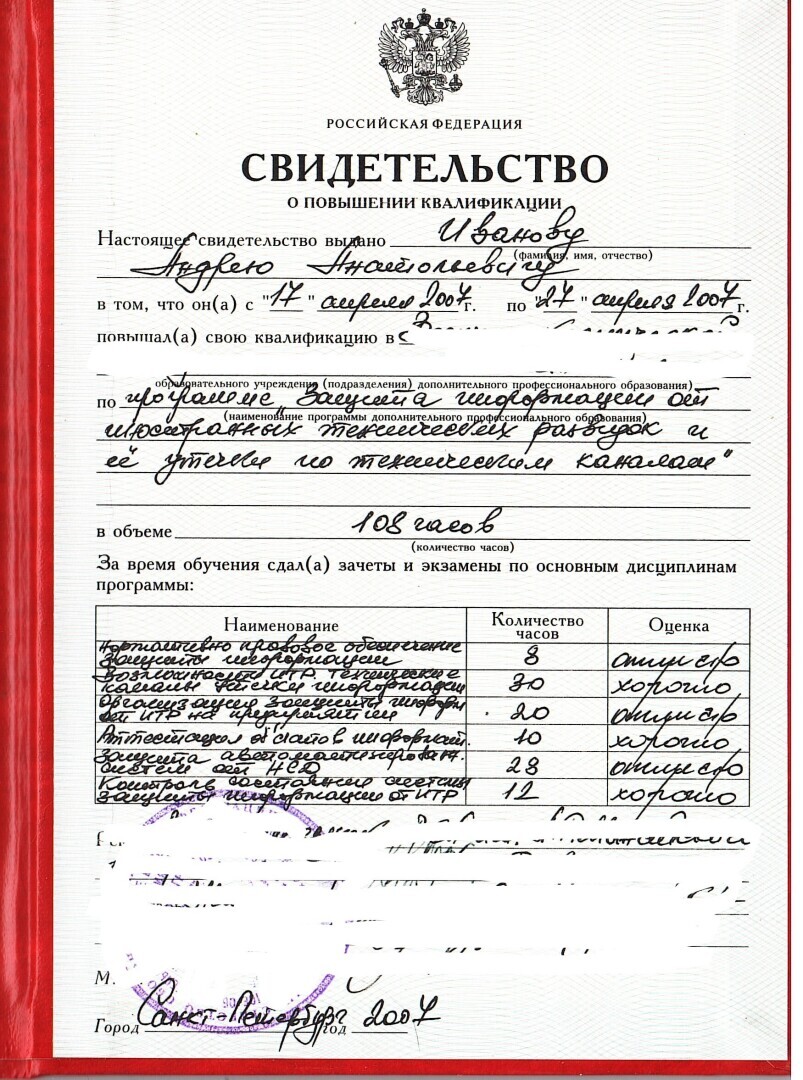 РОССИЙСКАЯ ФЕДЕРАЦИЯ
СВИДЕТЕЛЬСТВО
О ПОВЫШЕНИИ КВАЛИФИКАЦИИ
Настоящее свидетельство выдано Иванову
(фамилия, имя, отчество)
Андрею Анатольевичу
в том, что он(а) с "17" апреля 2007 г. по "27" апреля 2007 г.
повышал(а) свою квалификацию в
образовательного учреждения (подразделения) дополнительного профессионального образования)
по программе "Защита информации от
(наименование программы дополнительного профессионального образования)
иностранных технических разведок и
её утечки по техническим каналам"
в объеме 108 часов
(количество часов)
За время обучения сдал(а) зачеты и экзамены по основным дисциплинам
программы:
Наименование Количество часов Оценка
Нормативно правовое обеспечение
защиты информации 8 отлично
Возможности ИТР. Технические
каналы утечки информации 30 хорошо
Организация защиты информ
от ИТР на предприятии 20 отлично
Аттестация об'ктов информат. 10 хорошо
Защита автоматизирован.
систем от НСД 28 отлично
Контроль состояния системы
защиты информации от ИТР 12 хорошо
М.
Город Санкт-Петербург год 2007